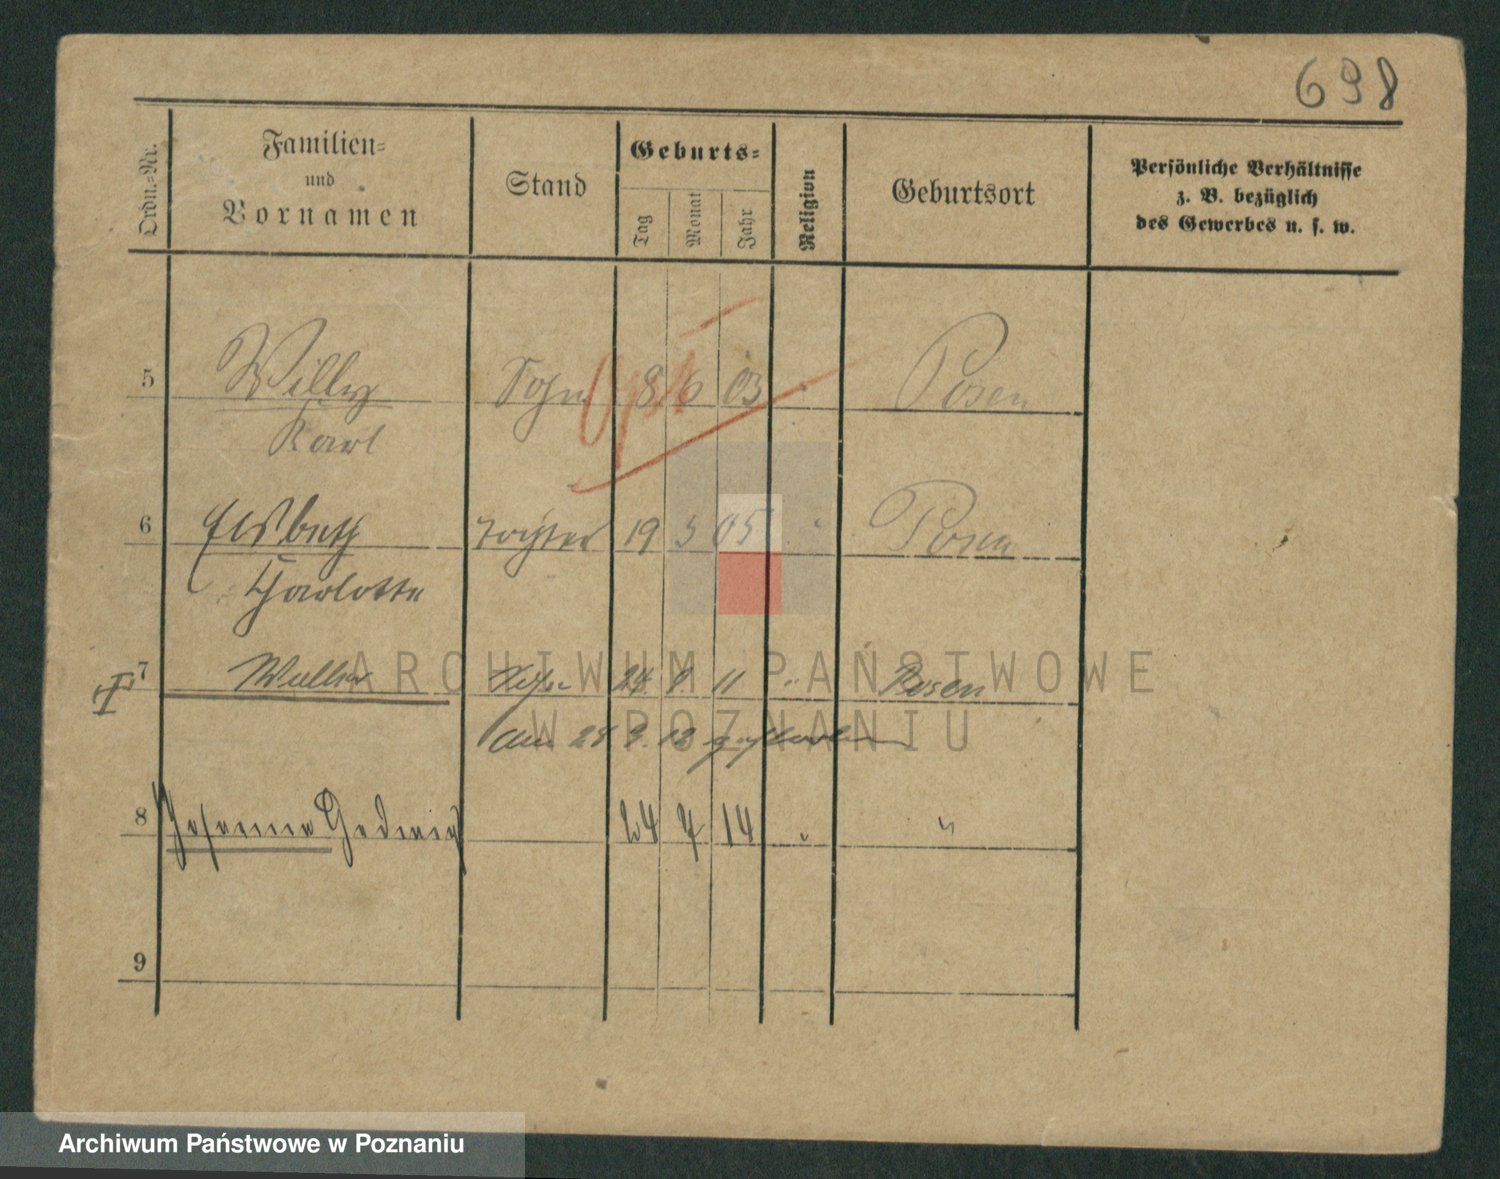 698
Ordn.-Nr.
Familien-
und
Vornamen
Stand
Geburts-
Tag
Monat
Jahr
Religion
Geburtsort
Persönliche Verhältnisse
z. B. bezüglich
des Gewerbes u. s. w.
5 Willy Sohn 8 6 03 " Posen
Karl
6 Elsbeth Tochter 19 5 05 " Posen
Charlotte
7 Sohn 24 8. 11 " Posen
am 28 9. 12 gestorben
8 Johanna Hedwig 24 7 14 " "
9
ARCHIWUM PAŃSTWOWE
W POZNANIU
Archiwum Państwowe w Poznaniu